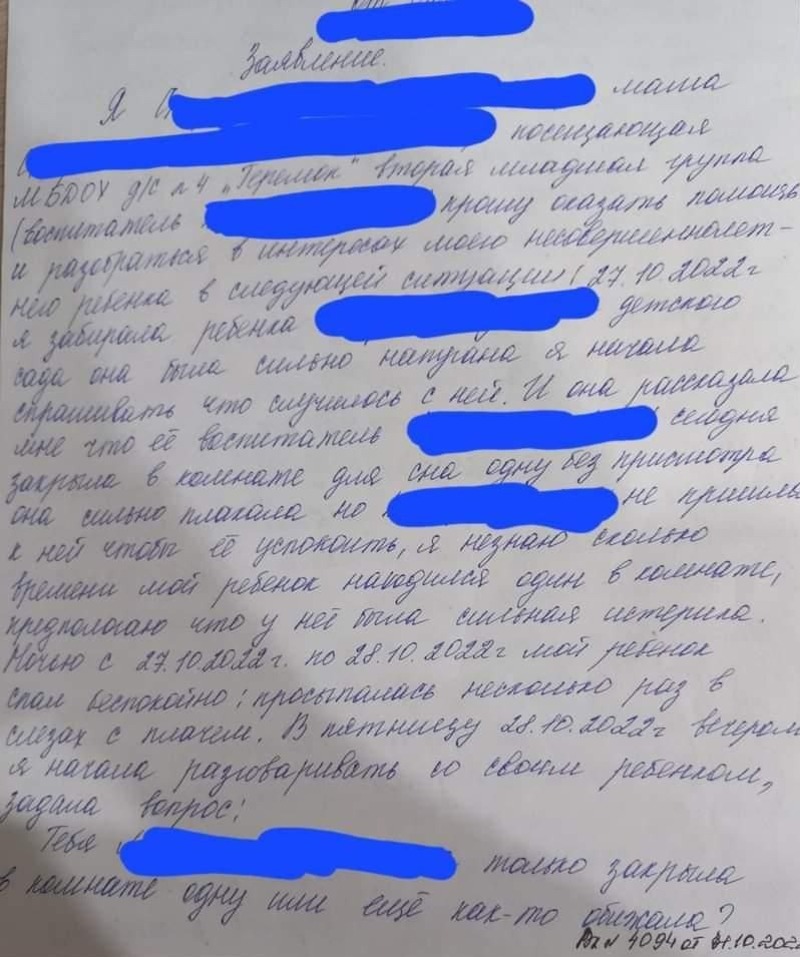 Заявление.
Я мама
посещающая
МБДОУ д/с №4 „Теремок" вторая младшая группа
(воспитатель прошу оказать помощь
и разобраться в интересах моего несовершеннолет-
него ребёнка в следующей ситуации( 27.10.2022г
я забирала ребёнка детского
сада она была сильно напугана я начала
спрашивать что случилось с ней. И она рассказала
мне что её воспитатель сегодня
закрыла в комнате для сна одну без присмотра
она сильно плакала но не пришла
к ней чтобы её успокоить, я незнаю сколько
времени мой ребёнок находился один в комнате,
предпологаю что у неё была сильная истерика.
Ночью с 27.10.2022г. по 28.10.2022г мой ребёнок
спал беспокойно: просыпалась несколько раз в
слезах с плачем. В пятницу 28.10.2022г вечером
я начала разговаривать со своим ребёнком,
задала вопрос:
Тебя только закрыла
в комнате одну или ещё как-то обижала?
Вх № 4094 от 31.10.202